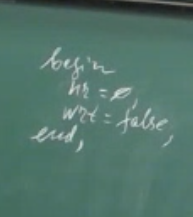 begin
nr = ø,
wrt = false,
end,